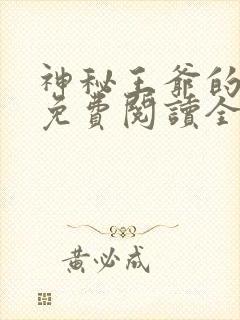 神秘王爺的
免費閱讀全
黃必成